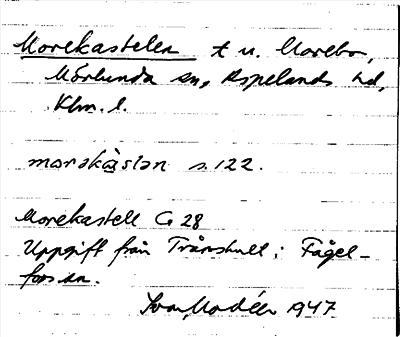 Morekastelen t u. Morebo,
Mörlunda sn, Aspelands hd,
Klm. l.
morəkàstən s. 122.
Morekastell G 28
Uppgift från Trånshult i Fågel-
fors sn.
Ivar Modéer 1947